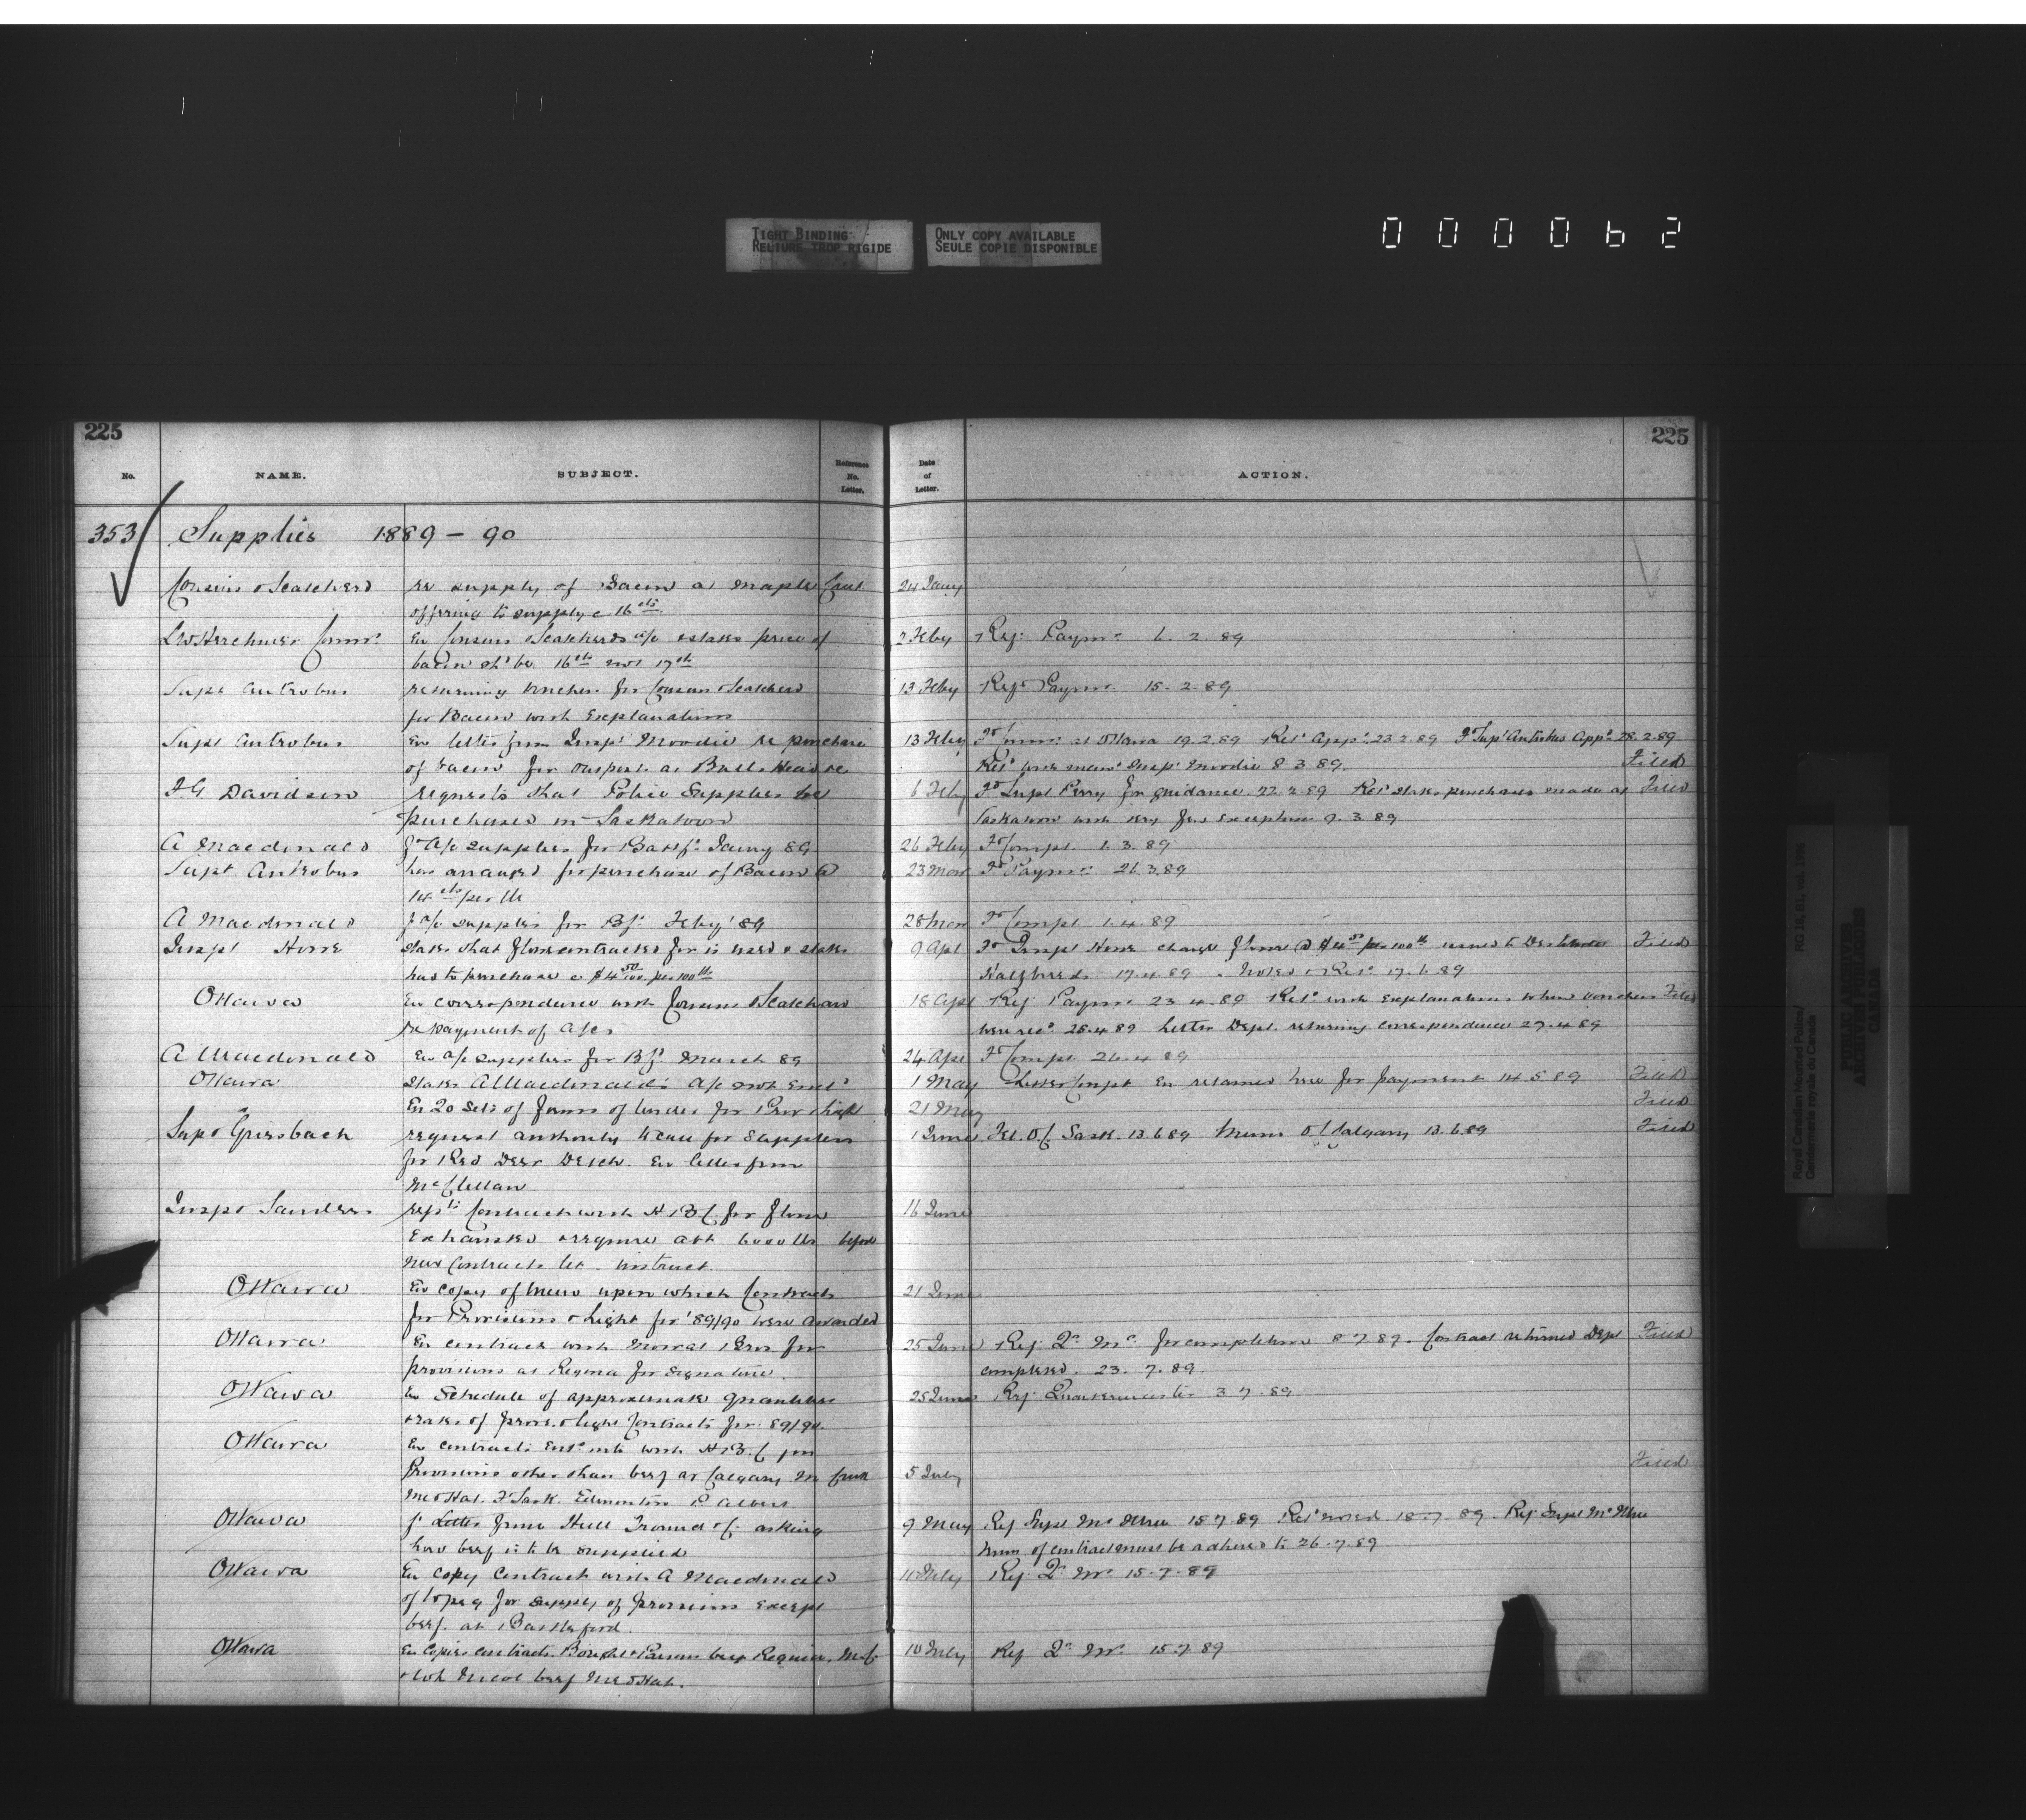 TIGHT BINDING
RELIURE TROP RIGIDE
ONLY COPY AVAILABLE
SEULE COPIE DISPONIBLE
0 0 0 0 6 2
225
225
No. NAME. SUBJECT. Reference No. Letter. Date of Letter. ACTION.
353 Supplies 1889 - 90
Cousins & Scatcherd re supply of Bacon at Maple Creek 24 Jany
offering to supply @ 16 cts
L W Herchmer Commr. En Cousins & Scatcherds a/c & states price of 2 Feby Ref. Paymr. 6. 2. 89
bacon shd be 16 cts not 17 cts
Supt Antrobus returning vouchers for Cousins & Scatcherd 13 Feby Ref. Paymr. 15. 2. 89
for Bacon with Explanations
Supt Antrobus En letter from Inspr Moodie re purchase 13 Feby Fd Commr. at Ottawa 19.2.89 Retd Appd. 23.2.89 Fd Supt Antrobus Appd. 28.2.89
of bacon for outposts at Bulls Head &c Retd Insp. Moodie 8 3 89. Filed
F. G. Davidson requests that Police Supplies be 6 Feby Fd Supt Perry for guidance 22.2.89 Retd states purchases made at Filed
purchased in Saskatoon Saskatoon with very few exceptions 9. 3 89
A Macdonald fd a/c supplies for Battf. Jany 89 26 Feby Fd Compt. 1. 3. 89
Supt Antrobus has arranged for purchase of Bacon @ 23 Mar Fd Paymr. 26.3.89
14 cts per lb
A Macdonald f a/c supplies for Bf. Feby '89 28 Mar Fd Compt 1.4.89
Inspt Howe states that flour contracted for is used & states 9 Apl Fd Inspt Howe charge flour @ $4 50 per 100 lb issued to Destitute Filed
had to purchase @ $4 50/100 per 100 lb Halfbreeds 17.4.89. Noted & Retd
Ottawa En correspondence with Cousins & Scatcherd 18 Apl Ref. Paymr. 23 4.89 Retd with Explanations when vouchers Filed
re payment of a/cs were recd. 25.4.89 Letter Dept. returning correspondence 27.4.89
A Macdonald En a/c supplies for Bf. March 89 24 Apl Fd Compt 26.4 89
Ottawa states A Macdonald's a/c not Encd 1 May Letter Compt En retained here for payment 14 5 89 Filed
En 20 sets of forms of tender for Prov & Light 21 May Filed
Supt Griesbach request authority to call for Supplies 1 June Tel. O.C. Sask. 13.6.89 Memo O.C. Calgary 13.6.89 Filed
for Red Deer Detch. En letter from
McClellan
Inspr Sanders repts Contract with H B C for flour 16 June
Exhausted & require abt 6000 lbs before
new Contracts let. instruct.
Ottawa En copy of Memo upon which Contracts 21 June
for Provisions & Light for '89/90 were awarded
Ottawa En contract with Mowat Bros for 25 June Ref. Qr. Mr. for completion 8.7.89. Contract returned Dept Filed
provisions at Regina for signature. completed. 23. 7. 89.
Ottawa En Schedule of approximate quantities 25 June Ref. Quartermaster 3 7. 89
& rates of provs. & light Contracts for 89/90.
Ottawa En contracts Entd into with H.B.C for
Provisions other than beef at Calgary M Creek 5 July Filed
Med Hat. F Sask. Edmonton P Albert
Ottawa fd Letter from Hull Trounce & Co. asking 9 May Ref Supt 15 7 89 Retd noted 18.7. 89. Ref. Supt
how beef is to be supplied terms of contract must be adhered to 26.7.89
Ottawa En Copy Contract with A Macdonald July Ref. Qr. Mr. 15.7.89
of Wpeg for supply of provisions Except
beef at Battleford.
Ottawa En Copies contracts beef Regina, M.C. 10 July Ref Qr. Mr. 15.7 89
beef Med Hat.
Royal Canadian Mounted Police/
Gendarmerie royale du Canada
RG 18, B1, vol. 1196
PUBLIC ARCHIVES
ARCHIVES PUBLIQUES
CANADA